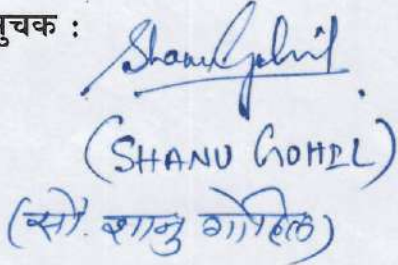 सुचक :
Shanu Gohil
(SHANU GOHIL)
(सौ. शानु गोहिल)